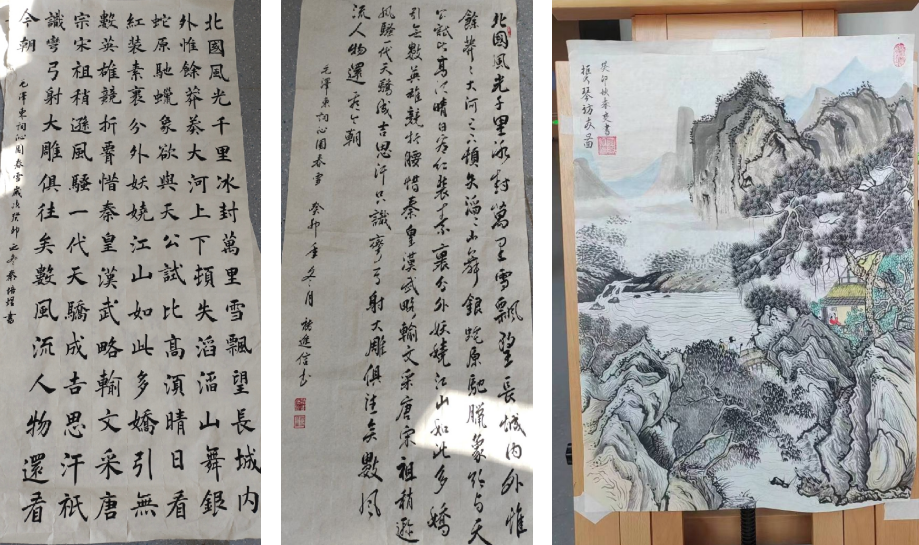 北國風光千里冰封萬里雪飄望長城內
外惟餘莽莽大河上下頓失滔滔山舞銀
蛇原馳蠟象欲與天公試比高須晴日看
紅裝素裹分外妖嬈江山如此多嬌引無
數英雄競折腰惜秦皇漢武略輸文采唐
宗宋祖稍遜風騷一代天驕成吉思汗祇
識彎弓射大雕俱往矣數風流人物還看
今朝
毛澤東詞沁園春雪歲次癸卯之冬書
北國風光千里冰封萬里雪飄望長城內外惟
餘莽々大河上下頓失滔々山舞銀蛇原馳臘象欲与天
公試比高須晴日看红装素裹分外妖嬈江山如此多嬌
引無數英雄競折腰惜秦皇漢武略輸文采唐宗宋祖稍遜
風騷一代天驕成吉思汗只識彎弓射大雕俱往矣數風
流人物還看今朝
毛澤東詞沁園春雪 癸卯年冬月 進信书
癸卯秋
携琴訪友圖